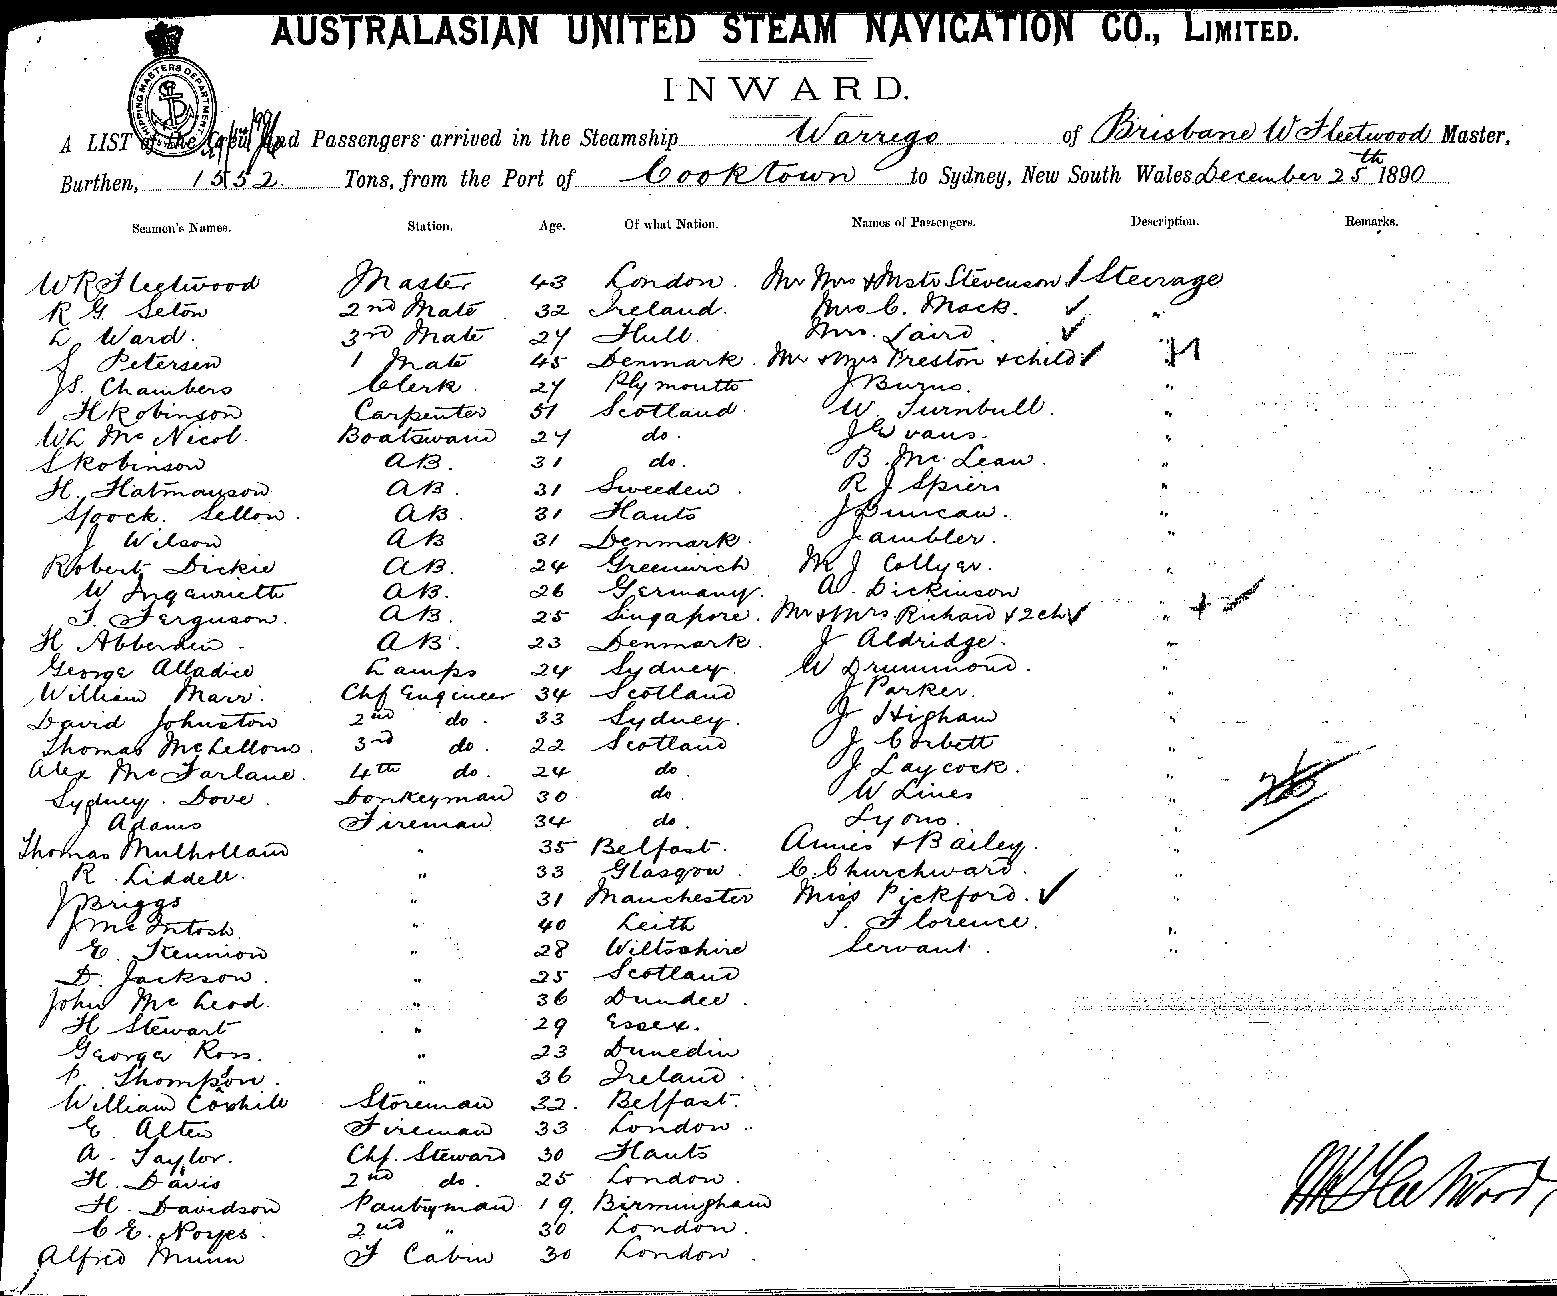 AUSTRALASIAN UNITED STEAM NAVIGATION CO., LIMITED.
INWARD.
A LIST of the Crew and Passengers arrived in the Steamship Warrego of Brisbane W Fleetwood Master,
Burthen, 1552 Tons, from the Port of Cooktown to Sydney, New South Wales December 25th 1890
Seamen's Names. Station. Age. Of what Nation. Names of Passengers. Description. Remarks.
WR Fleetwood Master 43 London. Mr Mrs & Mstr Stevenson / Steerage
R G Seton 2nd Mate 32 Ireland. Mrs C. Mack. ✓ "
L Ward. 3rd Mate 27 Hull. Mrs. Laird. ✓ "
J Petersen 1 Mate 45 Denmark. Mr & Mrs Preston & child / "
JS. Chambers Clerk. 27 Plymouth J Burns. "
H Robinson Carpenter 51 Scotland. W. Turnbull. "
WL McNicol. Boatswain 27 do. J Evans. "
S Robinson AB. 31 do. B. McLean. "
H. Hatmanson AB. 31 Sweeden. R J Spiers "
Sellon. AB. 31 Hants J Duncan. "
J Wilson AB 31 Denmark. J ambler. "
Robert Dickie AB. 24 Greenwich M J Collyer. "
W AB. 26 Germany. A. Dickinson "
T. Ferguson. AB. 25 Singapore. Mr & Mrs Richard & 2 ch / " + ✓
H Abberden. AB. 23 Denmark. J Aldridge. "
George Alladice Lamps 24 Sydney. W Drummond. "
William Marr. Chf Engineer 34 Scotland J Parker. "
David Johnston 2nd do. 33 Sydney. J Higham "
Thomas McLellon. 3rd do. 22 Scotland J Corbett "
Alex McFarlane. 4th do. 24 do. J Laycock. "
Sydney. Dove. Donkeyman 30 do. W Lines "
J Adams Fireman 34 do. Lyons. "
Thomas Mulholland " 35 Belfast. Annies & Bailey. "
R. Liddell. " 33 Glasgow. C. Churchward. "
J Briggs " 31 Manchester Miss Pickford. ✓ "
J McIntosh " 40 Leith T. Florence. "
E. Kennion " 28 Wiltschire Servant. "
D. Jackson. " 25 Scotland
John McLeod. " 36 Dundee.
H Stewart " 29 Essex.
George Ross. " 23 Dunedin
P. Thompson. " 36 Ireland.
William Coxhill Storeman 32. Belfast.
E. Alten Fireman 33 London.
A. Taylor. Chf. Steward 30 Hants
H. Davis 2nd do. 25 London.
H. Davidson Pantryman 19. Birmingham
C E. Noyes. 2nd " 30 London.
Alfred Munn F Cabin 30 London.
WR Fleetwood,